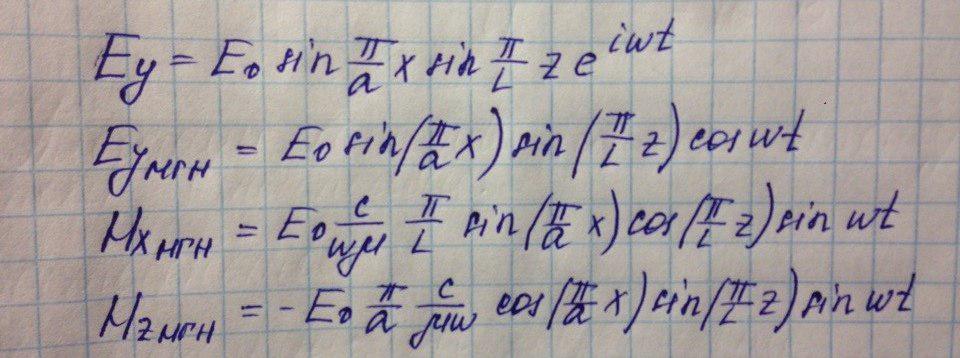 Ey = E₀ sin π/a x sin π/L z e^{iωt}
Eyмгн = E₀ sin(π/a x) sin(π/L z) cos ωt
Hxмгн = E₀ c/ωμ π/L sin(π/a x) cos(π/L z) sin ωt
Hzмгн = -E₀ π/a c/μω cos(π/a x) sin(π/L z) sin ωt